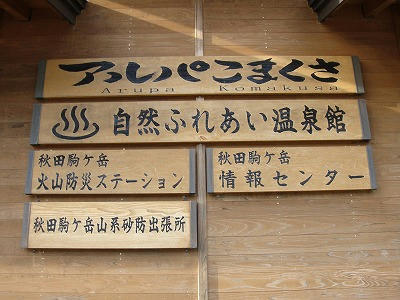 アルパこまくさ
Arupa Komakusa
自然ふれあい温泉館
秋田駒ケ岳
火山防災ステーション
秋田駒ケ岳
情報センター
秋田駒ケ岳山系砂防出張所